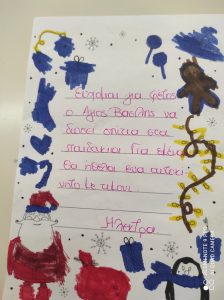 Εύχομαι για φέτος
ο Άγιος Βασίλης να
δώσει σπίτια στα
παιδάκια Για εμένα
θα ήθελα ένα αυτοκι
νητο με τιμονι
Ηλέκτρα